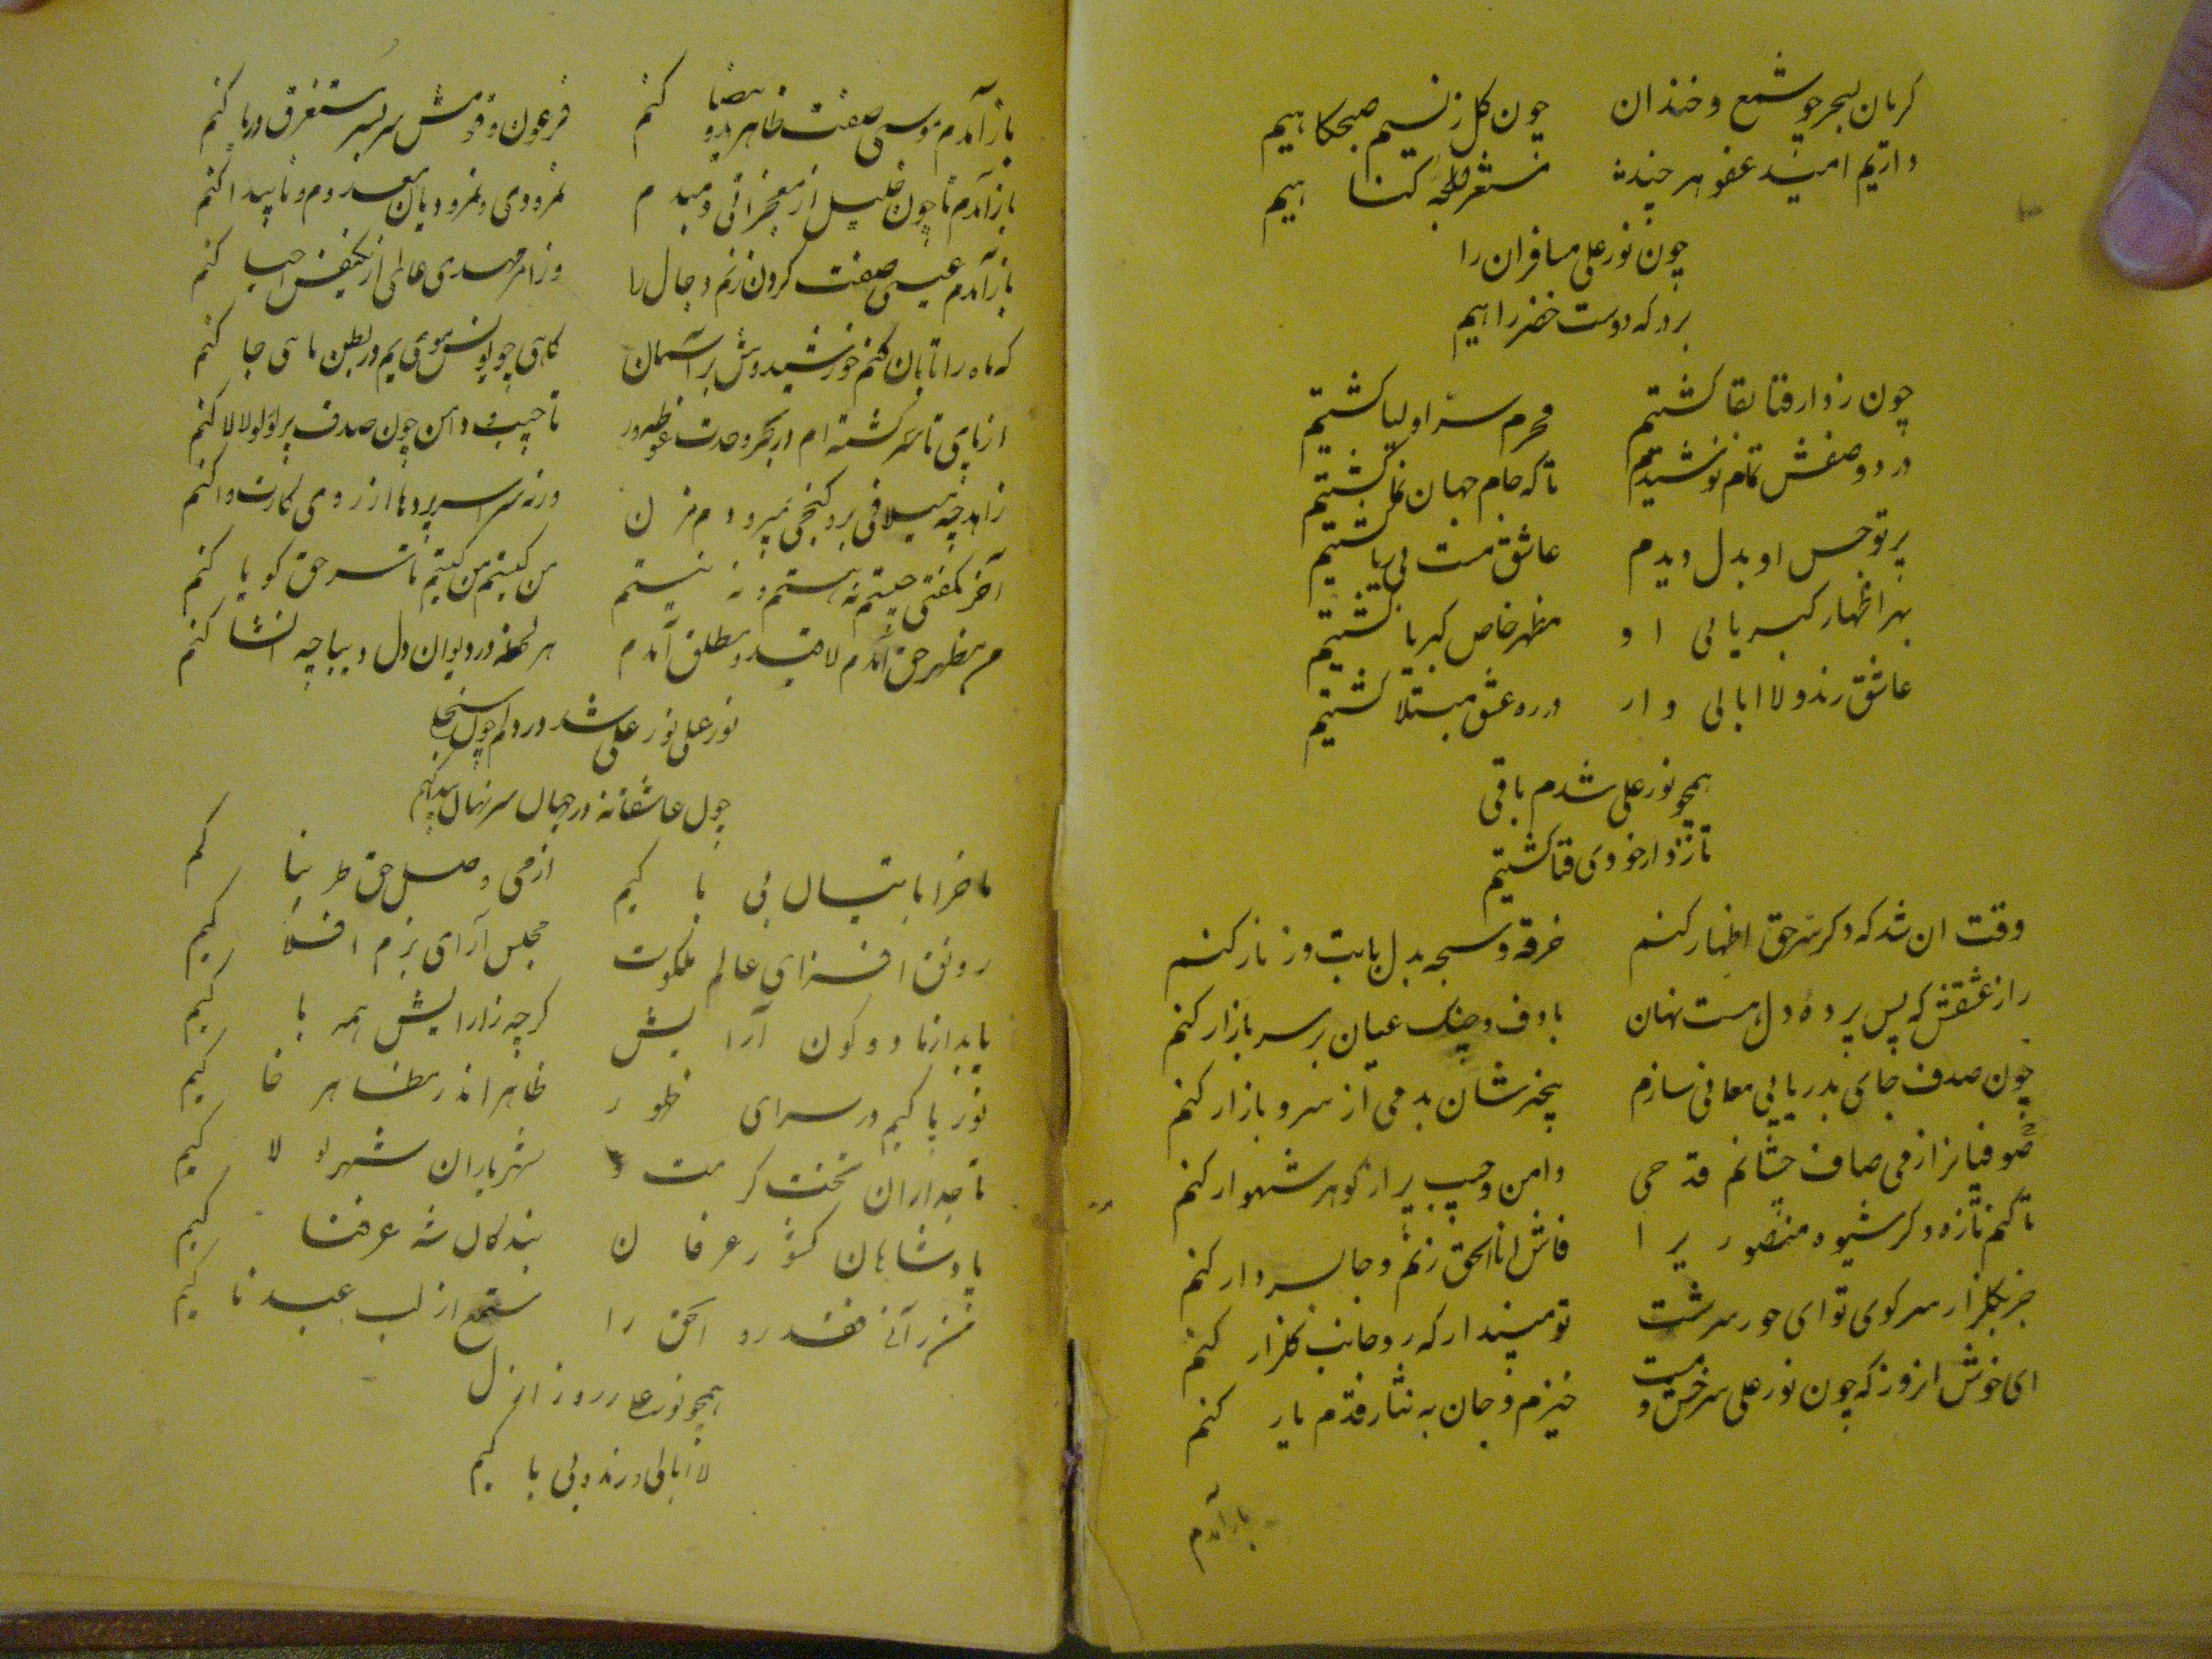 کریان بسحر چو شمع و خندان چون کل ز نسیم صبحکاهیم
داریم امید عفو هر چند مستغرق لجه کناهیم
چون نور علی مسافران را
بر درکه دوست خضر راهیم
چون ز دار فنا بقا کشتیم محرم سرّ اولیا کشتیم
درد وصفش تمام نوشیدیم تا که جام جهان نما کشتیم
پرتو حسن او بدل دیدم عاشق مست بی ریا کشتیم
بهر اظهار کبریائی او مظهر خاص کبریا کشتیم
عاشق رند و لاابالی وار در ره عشق مبتلا کشتیم
همچو نور علی شدم باقی
تا ز دار خودی فنا کشتیم
وقت ان شد که دکر سّر حق اظهار کنم خرقه و سبحه بدل بابت و زنار کنم
راز عشقش که پس پرده دل هست نهان با دف و چنک عیان بر سر بازار کنم
چون صدف جای بدریایی معانی سازم بیخبرشان بدمی از سر و بازار کنم
صوفیانرا ز می صاف چشانم قدحی دامن و جیب پر از کوهر شهوار کنم
تا کنم تازه دکر شیوه منصوری را فاش اناالحق زنم و جا بسر دار کنم
جز بکلزار سر کوی تو ای حور سرشت تو مپندار که رو جانب کلزار کنم
ای خوش انروز که چون نور علی سرخوش و مست خیزم و جان به نثار قدم یار کنم
باز آمدم
باز آمدم موسی صفت ظاهر ید و بیضا کنم فرعون و قومش سر بسر مستغرق دریا کنم
باز آمدم تا چون خلیل از معجزاتی دمبدم نمرودی و نمرودیان معدوم و ناپیدا کنم
باز آمدم عیسی صفت کردن زنم دجال را وز امر مهدی عالمی از یکنفس احیا کنم
که ماه را تابان کنم خورشیدوش بر آسمان کاهی چو یونس موی یم در بطن ماهی جا کنم
از پای تا سر کشته ام در بحر وحدت غوطه ور تا جیب و دامن چون صدف پر لولو لالا کنم
زاهد چه میلافی برو کنجی بمیر و دم مزن ورنه سراسر پردها از روی کارت واکنم
آخر نکفتی چیستم نه هستم و نه نیستم من کیستم من کیستم تا سر حق کویا کنم
من مظهر حق آمدم لاقید و مطلق آمدم هر لحظه در دیوان دل دیباچه انشا کنم
نور علی نور علی شد در دلم چون منجلی
چون عاشقانه در جهان سر نهان پیدا کنم
ما خراباتیان بی باکیم از می وصل حق طربناکیم
رونق افزای عالم ملکوت مجلس آرای بزم افلاکیم
یابد از ما دو کون آرایش کرچه ز ارایش همه پاکیم
نور پاکیم در سرای ظهور ظاهرا در مظاهر خاکیم
تاجداران تخت کرمت شهریاران شهر لولاکیم
پادشاهان کشور عرفان بندکان شه عرفناکیم
مستمع از لب عبدناکیم
همچو نور علی ز روز ازل
لاابالی و رند و بی باکیم